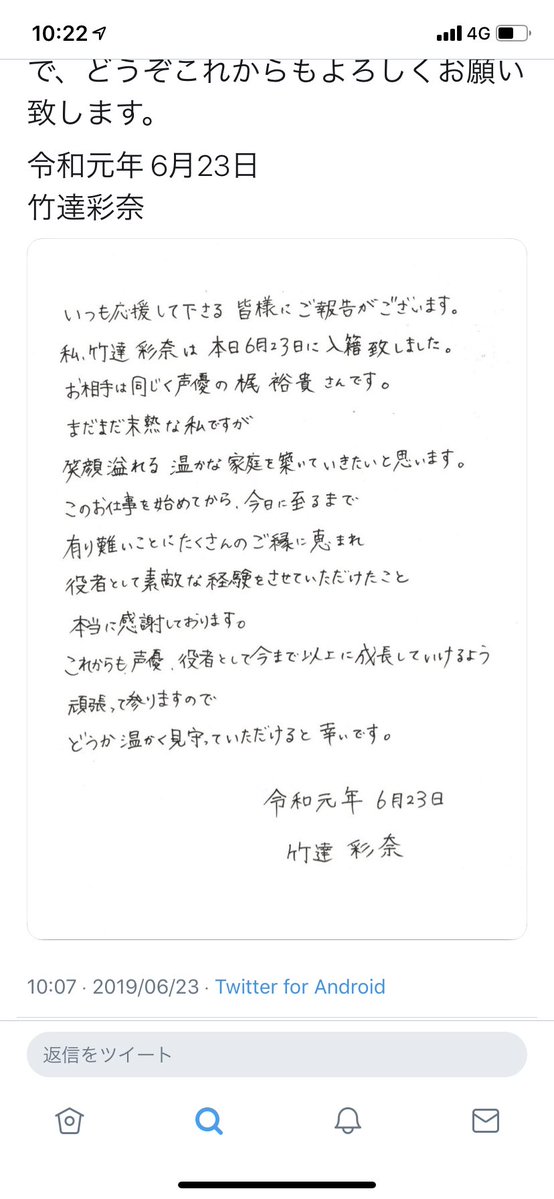 10:22
4G
で、どうぞこれからもよろしくお願い
致します。
令和元年6月23日
竹達彩奈
いつも応援して下さる 皆様にご報告がございます。
私、竹達 彩奈は 本日6月23日に入籍致しました。
お相手は同じく声優の 梶 裕貴 さんです。
まだまだ未熟な私ですが
笑顔溢れる 温かな家庭を築いていきたいと思います。
このお仕事を始めてから、今日に至るまで
有り難いことにたくさんのご縁に恵まれ
役者として素敵な経験をさせていただけたこと
本当に感謝しております。
これからも声優、役者として今まで以上に成長していけるよう
頑張って参りますので
どうか温かく見守っていただけると幸いです。
令和元年 6月23日
竹達 彩奈
10:07 · 2019/06/23 · Twitter for Android
返信をツイート